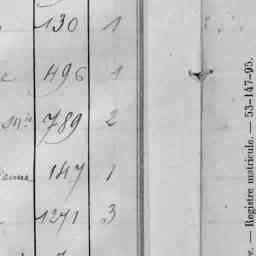 130 1
496 1
789 2
147 1
1271 3
— Registre matricule. — 53-147-95.